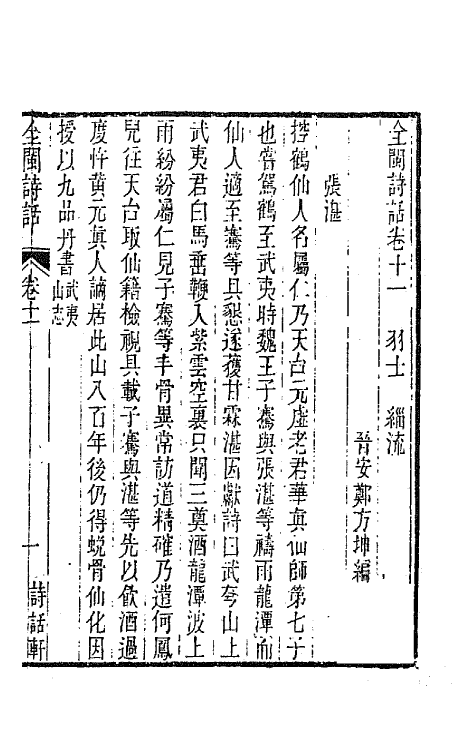 全閩詩話卷十一　羽士　緇流
晉安鄭方坤編
張湛
控鶴仙人名屬仁乃天台元虛老君華眞仙師第七子
也嘗駕鶴至武夷時魏王子騫與張湛等禱雨龍潭而
仙人適至騫等具懇遂獲甘霖湛因獻詩曰武夸山上
武夷君白馬垂鞭入紫雲空裏只聞三奠酒龍潭波上
雨紛紛屬仁見子騫等丰骨異常訪道精確乃遣何鳳
兒往天台取仙籍檢視具載子騫與湛等先以飮酒過
度忤黃元眞人謫居此山八百年後仍得蛻骨仙化因
授以九品丹書武夷山志
全閩詩話　卷十一　一　詩話軒